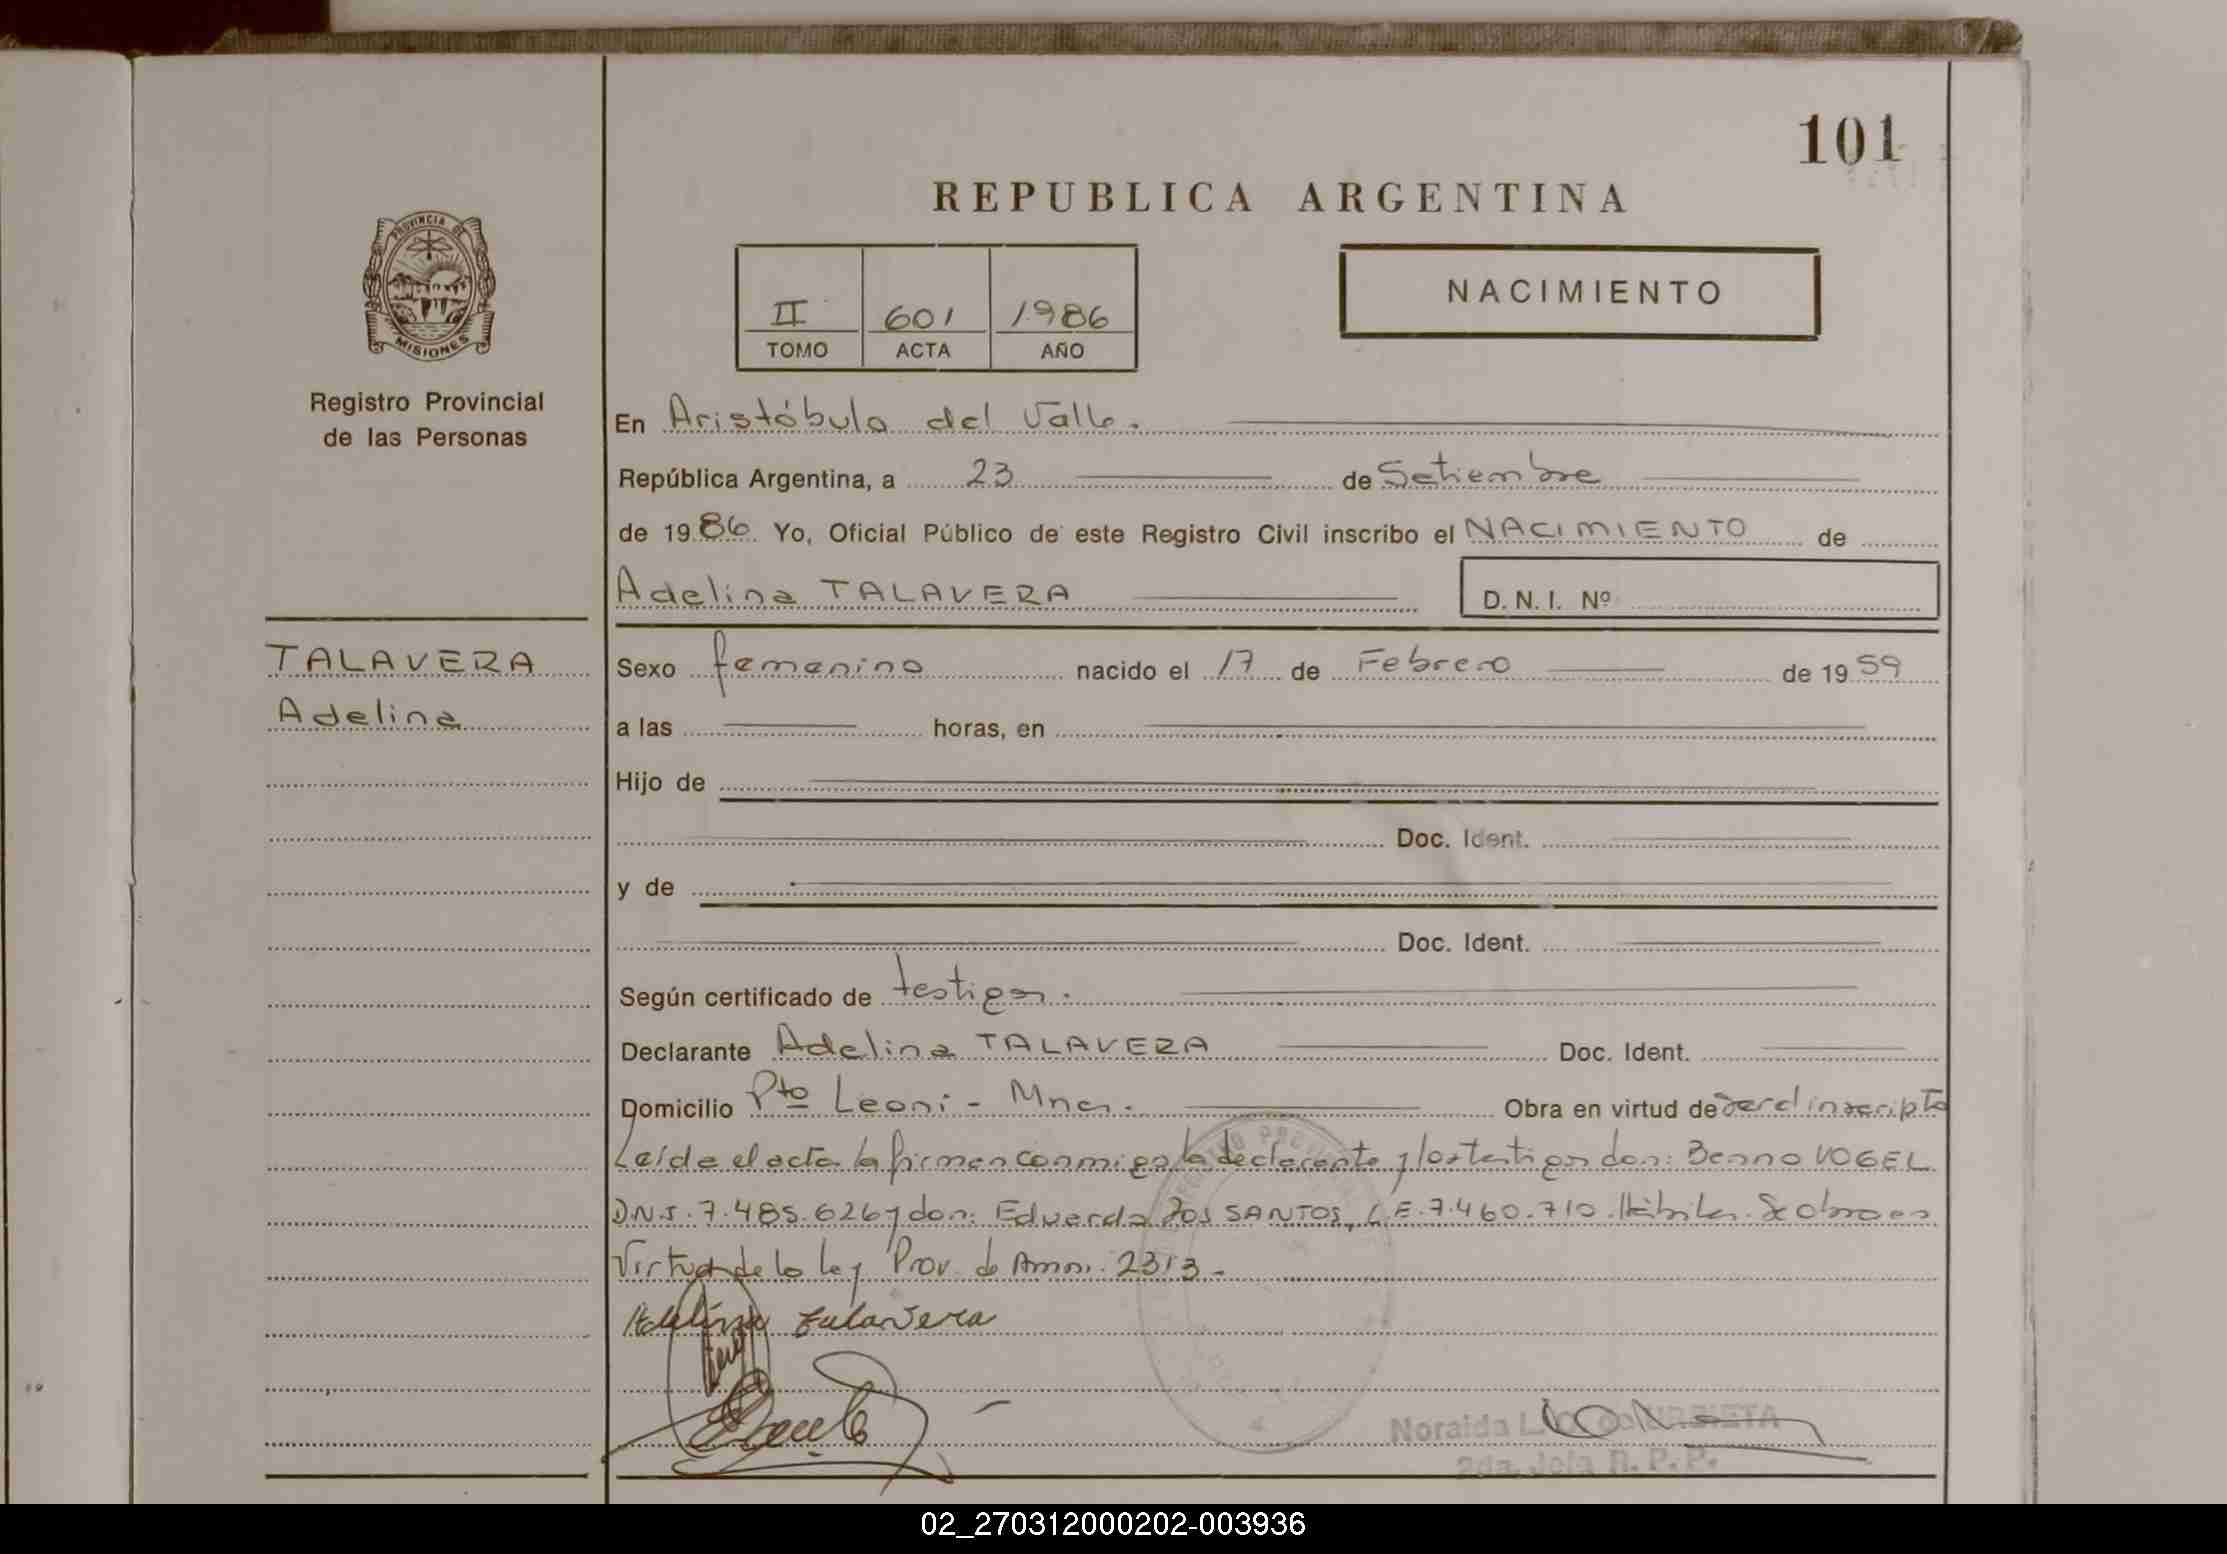 101
REPUBLICA ARGENTINA
PROVINCIA DE
MISIONES
II 601 1986
TOMO ACTA AÑO
NACIMIENTO
Registro Provincial
de las Personas
En Aristóbulo del Valle.
República Argentina, a 23 de Setiembre
de 1986. Yo, Oficial Público de este Registro Civil inscribo el NACIMIENTO de
Adelina TALAVERA D. N. I. Nº
TALAVERA
Adelina
Sexo femenino nacido el 17 de Febrero de 1959
a las horas, en
Hijo de
Doc. Ident.
y de
Doc. Ident.
Según certificado de testigos.
Declarante Adelina TALAVERA Doc. Ident.
Domicilio Pto Leoni - Mnes. Obra en virtud de ser el inscripto
Leída el acta la firman conmigo la declarante y los testigos don: Benno VOGEL
D.N.I. 7.485.626 y don: Eduardo DOS SANTOS, C.E. 7.460.710. Hábiles. Se obra en
Virtud de la ley Prov. de Amn. 2313.-
Adelina Talavera
Noraida L. de URBIETA
2da. Jefa R. P. P.
02_270312000202-003936